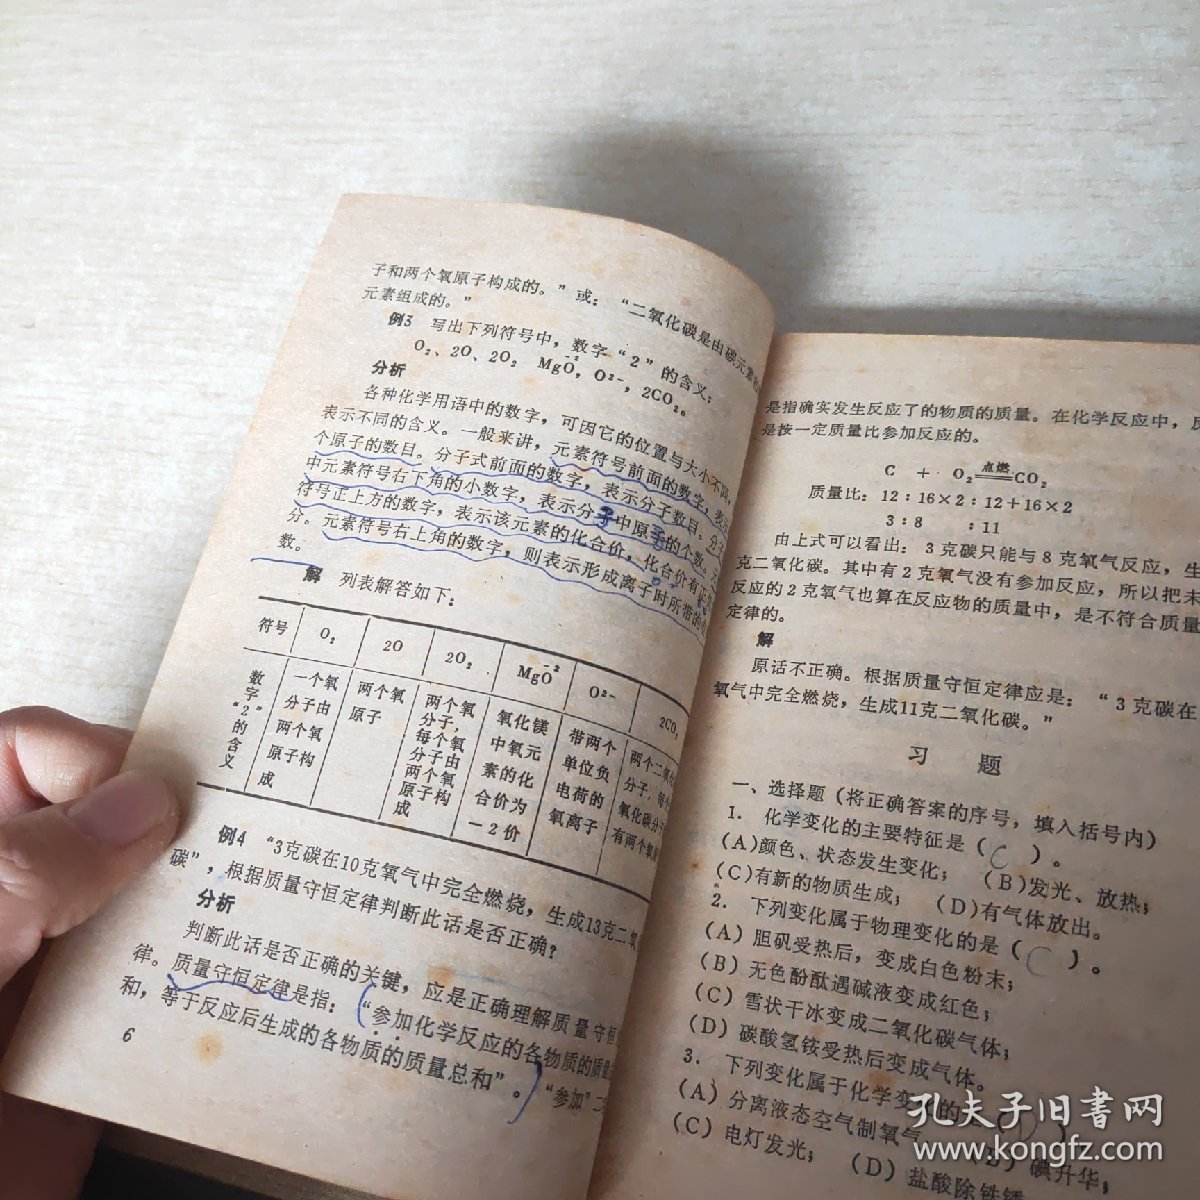 子和两个氧原子构成的。”或：“二氧化碳是由碳元素
元素组成的。”
例3 写出下列符号中，数字“2”的含义：
O₂、2O、2O₂ MgO⁻²，O²⁻，2CO₂。
分析
各种化学用语中的数字，可因它的位置与大小不同，
表示不同的含义。一般来讲，元素符号前面的数字，表示
个原子的数目。分子式前面的数字，表示分子数目，分子
中元素符号右下角的小数字，表示分子中原子的个数。元
符号正上方的数字，表示该元素的化合价，化合价有正
分。元素符号右上角的数字，则表示形成离子时所带的
数。
解 列表解答如下：
符号 O₂ 2O 2O₂ MgO⁻² O²⁻ 2CO₂
数字“2”的含义
一个氧分子由两个氧原子构成
两个氧原子
两个氧分子，每个氧分子由两个氧原子构成
氧化镁中氧元素的化合价为－2价
带两个单位负电荷的氧离子
两个二氧
分子，每
氧化碳分
有两个氧
例4 “3克碳在10克氧气中完全燃烧，生成13克二氧
碳”，根据质量守恒定律判断此话是否正确？
分析
判断此话是否正确的关键，应是正确理解质量守恒
律。质量守恒定律是指：“参加化学反应的各物质的质量
和，等于反应后生成的各物质的质量总和”。“参加”二
6
是指确实发生反应了的物质的质量。在化学反应中，反
是按一定质量比参加反应的。
C + O₂ 点燃 CO₂
质量比：12：16×2：12＋16×2
3：8 ：11
由上式可以看出：3克碳只能与8克氧气反应，生
克二氧化碳。其中有2克氧气没有参加反应，所以把未
反应的2克氧气也算在反应物的质量中，是不符合质量
定律的。
解
原话不正确。根据质量守恒定律应是：“3克碳在
氧气中完全燃烧，生成11克二氧化碳。”
习 题
一、选择题（将正确答案的序号，填入括号内）
1. 化学变化的主要特征是（C）。
(A)颜色、状态发生变化； (B)发光、放热；
(C)有新的物质生成； (D)有气体放出。
2. 下列变化属于物理变化的是（C）。
(A) 胆矾受热后，变成白色粉末；
(B) 无色酚酞遇碱液变成红色；
(C) 雪状干冰变成二氧化碳气体；
(D) 碳酸氢铵受热后变成气体。
3. 下列变化属于化学变化的是（D）
(A) 分离液态空气制氧气 (B) 碘升华；
(C) 电灯发光； (D) 盐酸除铁锈
孔夫子旧书网
www.kongfz.com